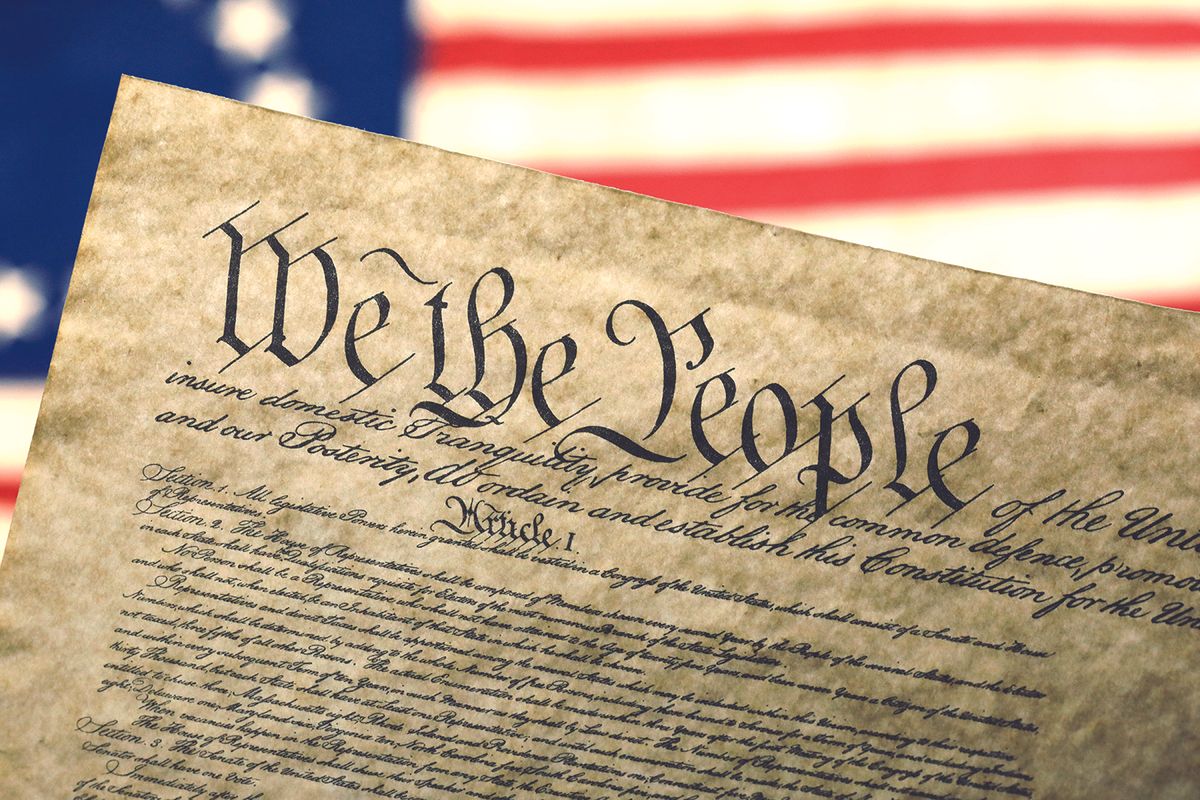 We the People of the Uni
insure domestic Tranquility, provide for the common defence, promo
and our Posterity, do ordain and establish this Constitution for the Un
Article. I.
Section. 1. All legislative Powers herein granted shall be vested in a Congress of the United States, which shall consist of a Senate and House
of Representatives.
Section. 2. The House of Representatives shall be composed of Members chosen every second Year by the People of the several States, and the Electors
in each State shall have Qualifications requisite for Electors of the most numerous Branch of the State Legislature.
No Person shall be a Representative who shall not have attained to the Age of twenty five Years, and been seven Years a Citizen of the United States,
and who shall not, when elected, be an Inhabitant of that State in which he shall be chosen.
Representatives and direct Taxes shall be apportioned among the several States which may be included within this Union, according to their respective
Numbers, which shall be determined by adding to the whole Number of free Persons, including those bound to Service for a Term of Years
not taxed, three fifths of all other Persons. The actual Enumeration shall be made within three Years after the first Meeting of the Congress of the United States,
and within every subsequent Term of ten Years, in such Manner as they shall by Law direct. The Number of Representatives shall not exceed one for every
thirty Thousand, but each State shall have at Least one Representative
entitled to chuse three, Massachusetts eight, Rhode Island and Providence Plantations one, Connecticut
eight, Delaware one, Maryland six, Virginia ten, North Carolina five, South Carolina five
When vacancies happen in the Representation from any State
The House of Representatives shall chuse their Speaker and other
Section. 3. The Senate of the United States shall be
Senator shall have one Vote.
Immediately after
of the Senators